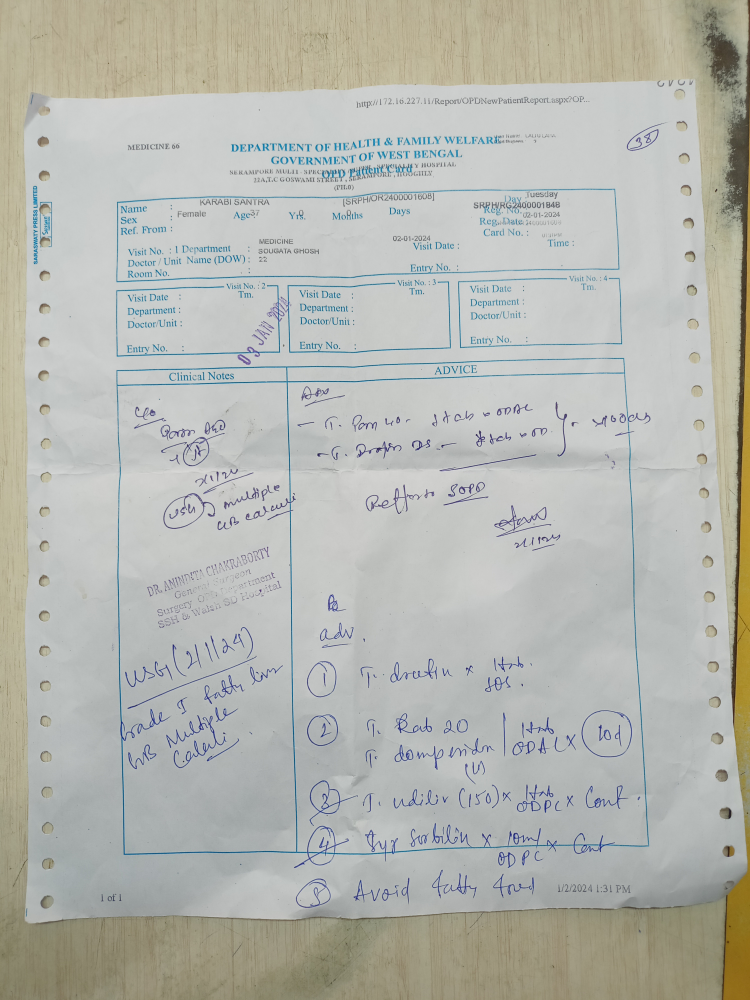 http://172.16.227.11/Report/OPDNewPatientReport.aspx?OP...
MEDICINE 66
38
DEPARTMENT OF HEALTH & FAMILY WELFARE
GOVERNMENT OF WEST BENGAL
SERAMPORE MULTI - SPECIALITY HOSPITAL
OPD Patient Card
GOSWAMI STREET , SERAMPORE , HOOGHLY
SARASWATY PRESS LIMITED
Name : KARABI SANTRA [SRPH/OR2400001608] Day : Tuesday
Sex : Female Age 37 Yrs. 0 Months 0 Days Reg. No. SRPH/RG2400001848
Ref. From : Reg. Date 02-01-2024
Card No. :
Visit No. : 1 Department : MEDICINE 02-01-2024 Visit Date : Time :
Doctor / Unit Name (DOW) : SOUGATA GHOSH
Room No. : 22 Entry No. :
Visit No. : 2
Visit Date : Tm.
Department :
Doctor/Unit :
Entry No. :
03 JAN 2024
Visit No. : 3
Visit Date : Tm.
Department :
Doctor/Unit :
Entry No. :
Visit No. : 4
Visit Date : Tm.
Department :
Doctor/Unit :
Entry No. :
Clinical Notes
ADVICE
C/o
Pain
2/1/24
USG multiple
GB calculi
DR. ANININTA CHAKRABORTY
General Surgeon
Surgery OPD Department
SSH & Walsh SD Hospital
USG (2/1/24)
Grade I fatty liver
GB Multiple
Calculi.
Adv
- T. Pan 40 -
- T. Drofin DS -
Reffer to SOPD
2/1/24
adv.
① T. drotin x 1tab.
SOS.
② T. Rab 20
T. domperidon
1tab
ODAC x 10d
③ T. udiliv (150) x 1tab
ODPC x Cont.
④ Syr Sorbilin x 10ml
ODPC x Cont
⑤ Avoid fatty food
1 of 1
1/2/2024 1:31 PM